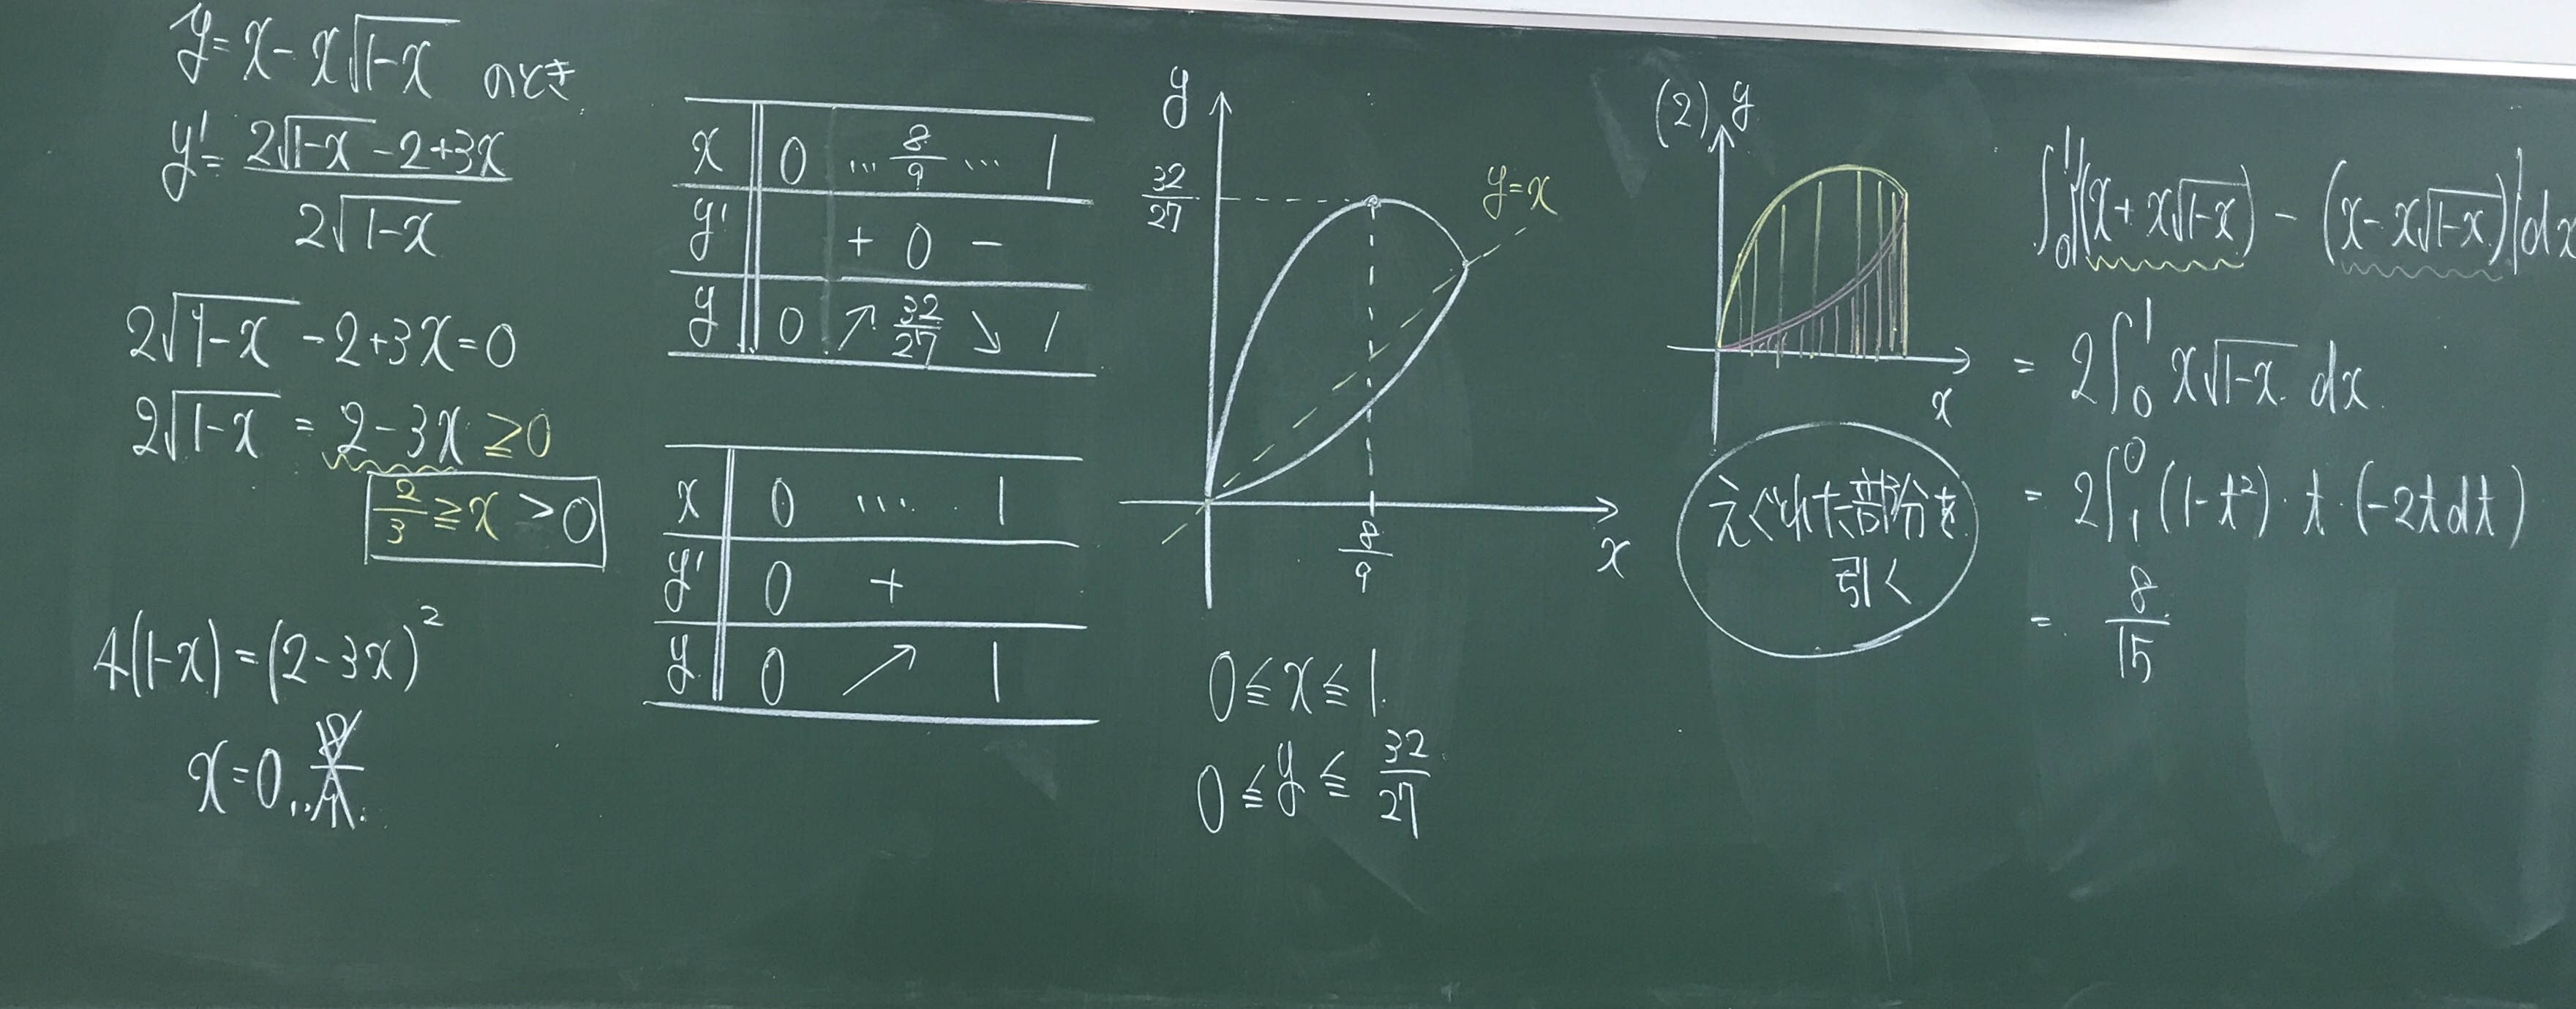 y=x-x√1-x のとき
y'= 2√1-x -2+3x / 2√1-x
2√1-x -2+3x=0
2√1-x = 2-3x ≧0
2/3 ≧x >0
4(1-x)=(2-3x)²
x=0,
x 0 … 8/9 … 1
y' + 0 -
y 0 ↗ 32/27 ↘ 1
x 0 … 1
y' 0 +
y 0 ↗ 1
y
32/27
y=x
8/9
x
0≦x≦1
0≦y≦ 32/27
(2) y
x
えぐれた部分を
引く
∫₀¹|(x+x√1-x) - (x-x√1-x)|dx
= 2∫₀¹ x√1-x dx
= 2∫₁⁰ (1-t²)・t・(-2tdt)
= 8/15